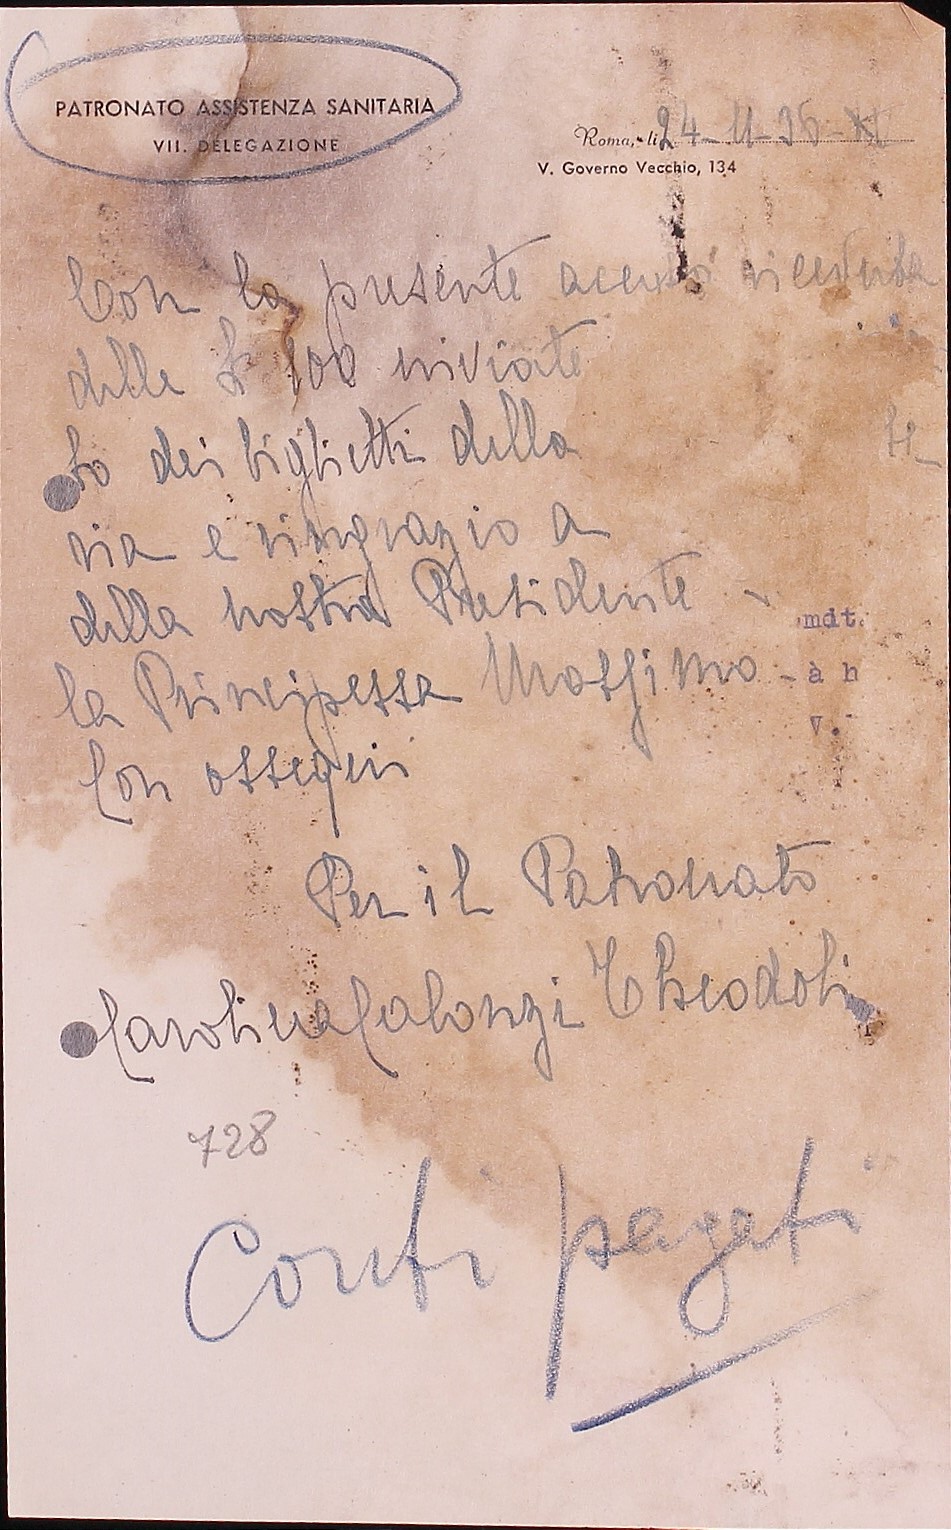 PATRONATO ASSISTENZA SANITARIA
VII. DELEGAZIONE
Roma, li 24-11-36-XI
V. Governo Vecchio, 134
Con la presente accuso ricevuta
delle £ 100 inviate
to dei biglietti della
ria e ringrazio a
della nostra Presidente -
la Principessa Massimo -
Con ossequi
mdt.
à h
V.
Per il Patronato
Carolina Calonzi Theodoli
728
Conti pagati